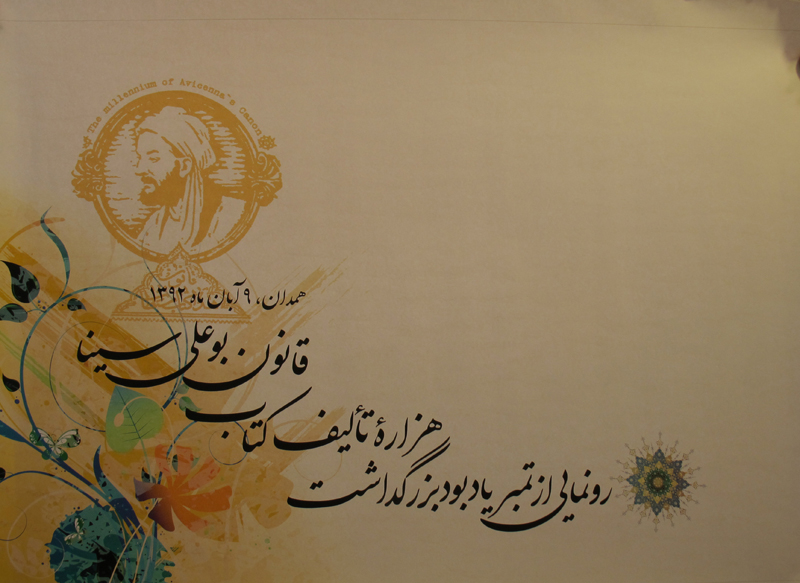 The millennium of Avicenna's Canon
همدان، ۹ آبان ماه ۱۳۹۲
قانون بوعلی سینا
هزارهٔ تألیف کتاب
رونمایی از تمبر یادبود بزرگداشت